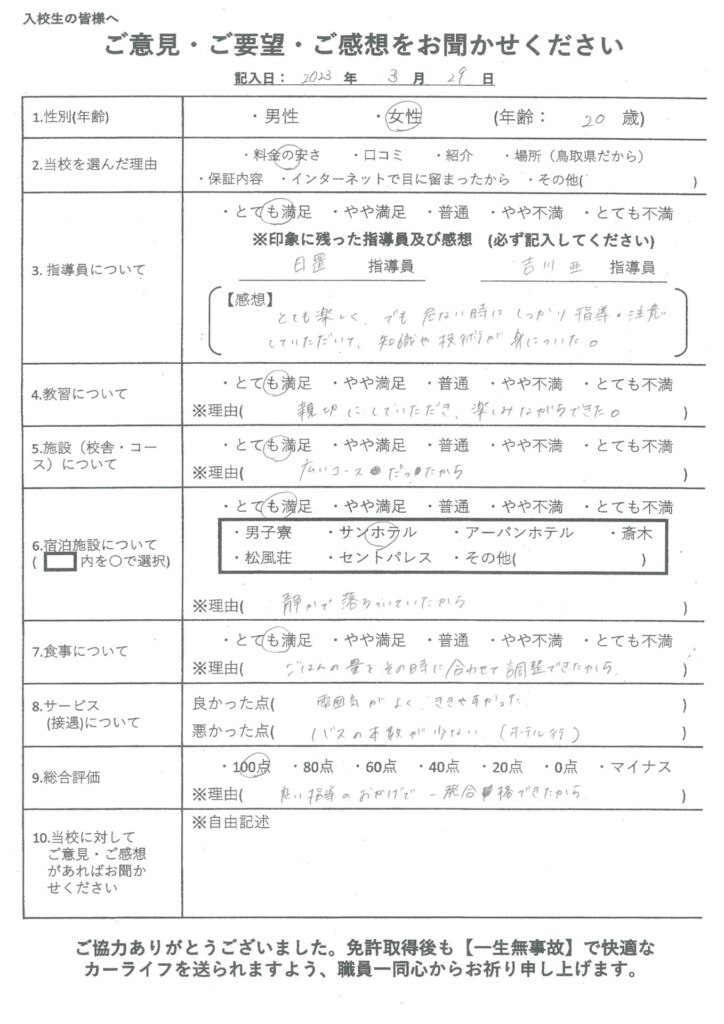 入校生の皆様へ
ご意見・ご要望・ご感想をお聞かせください
記入日： 2023 年 3 月 29 日
1.性別(年齢) ・男性 ・女性 (年齢： 20 歳)
2.当校を選んだ理由 ・料金の安さ ・口コミ ・紹介 ・場所（鳥取県だから）
・保証内容 ・インターネットで目に留まったから ・その他( )
3. 指導員について ・とても満足 ・やや満足 ・普通 ・やや不満 ・とても不満
※印象に残った指導員及び感想 (必ず記入してください)
日置 指導員 吉川 亜 指導員
【感想】
とても楽しく、でも危ない時にしっかり指導・注意
していただいて、知識や技術が身についた。
4.教習について ・とても満足 ・やや満足 ・普通 ・やや不満 ・とても不満
※理由( 親切にしていただき、楽しみながらできた。 )
5.施設（校舎・コース）について ・とても満足 ・やや満足 ・普通 ・やや不満 ・とても不満
※理由( 広いコースだったから )
6.宿泊施設について ・とても満足 ・やや満足 ・普通 ・やや不満 ・とても不満
( 内を〇で選択) ・男子寮 ・サンホテル ・アーバンホテル ・斎木
・松風荘 ・セントパレス ・その他( )
※理由( 静かで落ちついていたから )
7.食事について ・とても満足 ・やや満足 ・普通 ・やや不満 ・とても不満
※理由( ごはんの量をその時に合わせて調整できたから )
8.サービス 良かった点( 雰囲気がよく、ききやすかった )
(接遇)について 悪かった点( バスの本数が少ない (ホテル行) )
9.総合評価 ・100点 ・80点 ・60点 ・40点 ・20点 ・0点 ・マイナス
※理由( 良い指導のおかげで 一発合格できたから )
10.当校に対して ※自由記述
ご意見・ご感想
があればお聞か
せください
ご協力ありがとうございました。免許取得後も【一生無事故】で快適な
カーライフを送られますよう、職員一同心からお祈り申し上げます。